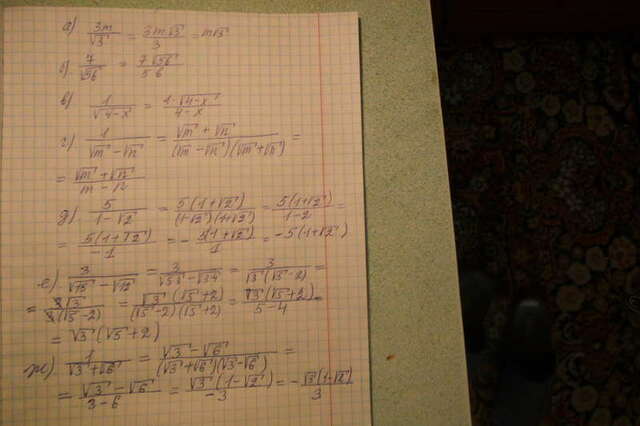 а) 3m/√3 = 3m√3/3 = m√3
б) 7/√56 = 7√56/56
в) 1/√(4-x) = 1·√(4-x)/(4-x)
г) 1/(√m - √n) = (√m + √n)/((√m - √n)(√m + √n)) =
= (√m + √n)/(m - n)
д) 5/(1-√2) = 5(1+√2)/((1-√2)(1+√2)) = 5(1+√2)/(1-2) =
= 5(1+√2)/(-1) = - 5(1+√2)/1 = -5(1+√2)
е) 3/(√15 - √12) = 3/(√5·3 - √3·4) = 3/(√3(√5-2)) =
= 3√3/(3(√5-2)) = √3(√5+2)/((√5-2)(√5+2)) = √3(√5+2)/(5-4) =
= √3(√5+2)
ж) 1/(√3+√6) = (√3-√6)/((√3+√6)(√3-√6)) =
= (√3-√6)/(3-6) = √3(1-√2)/(-3) = - √3(1-√2)/3